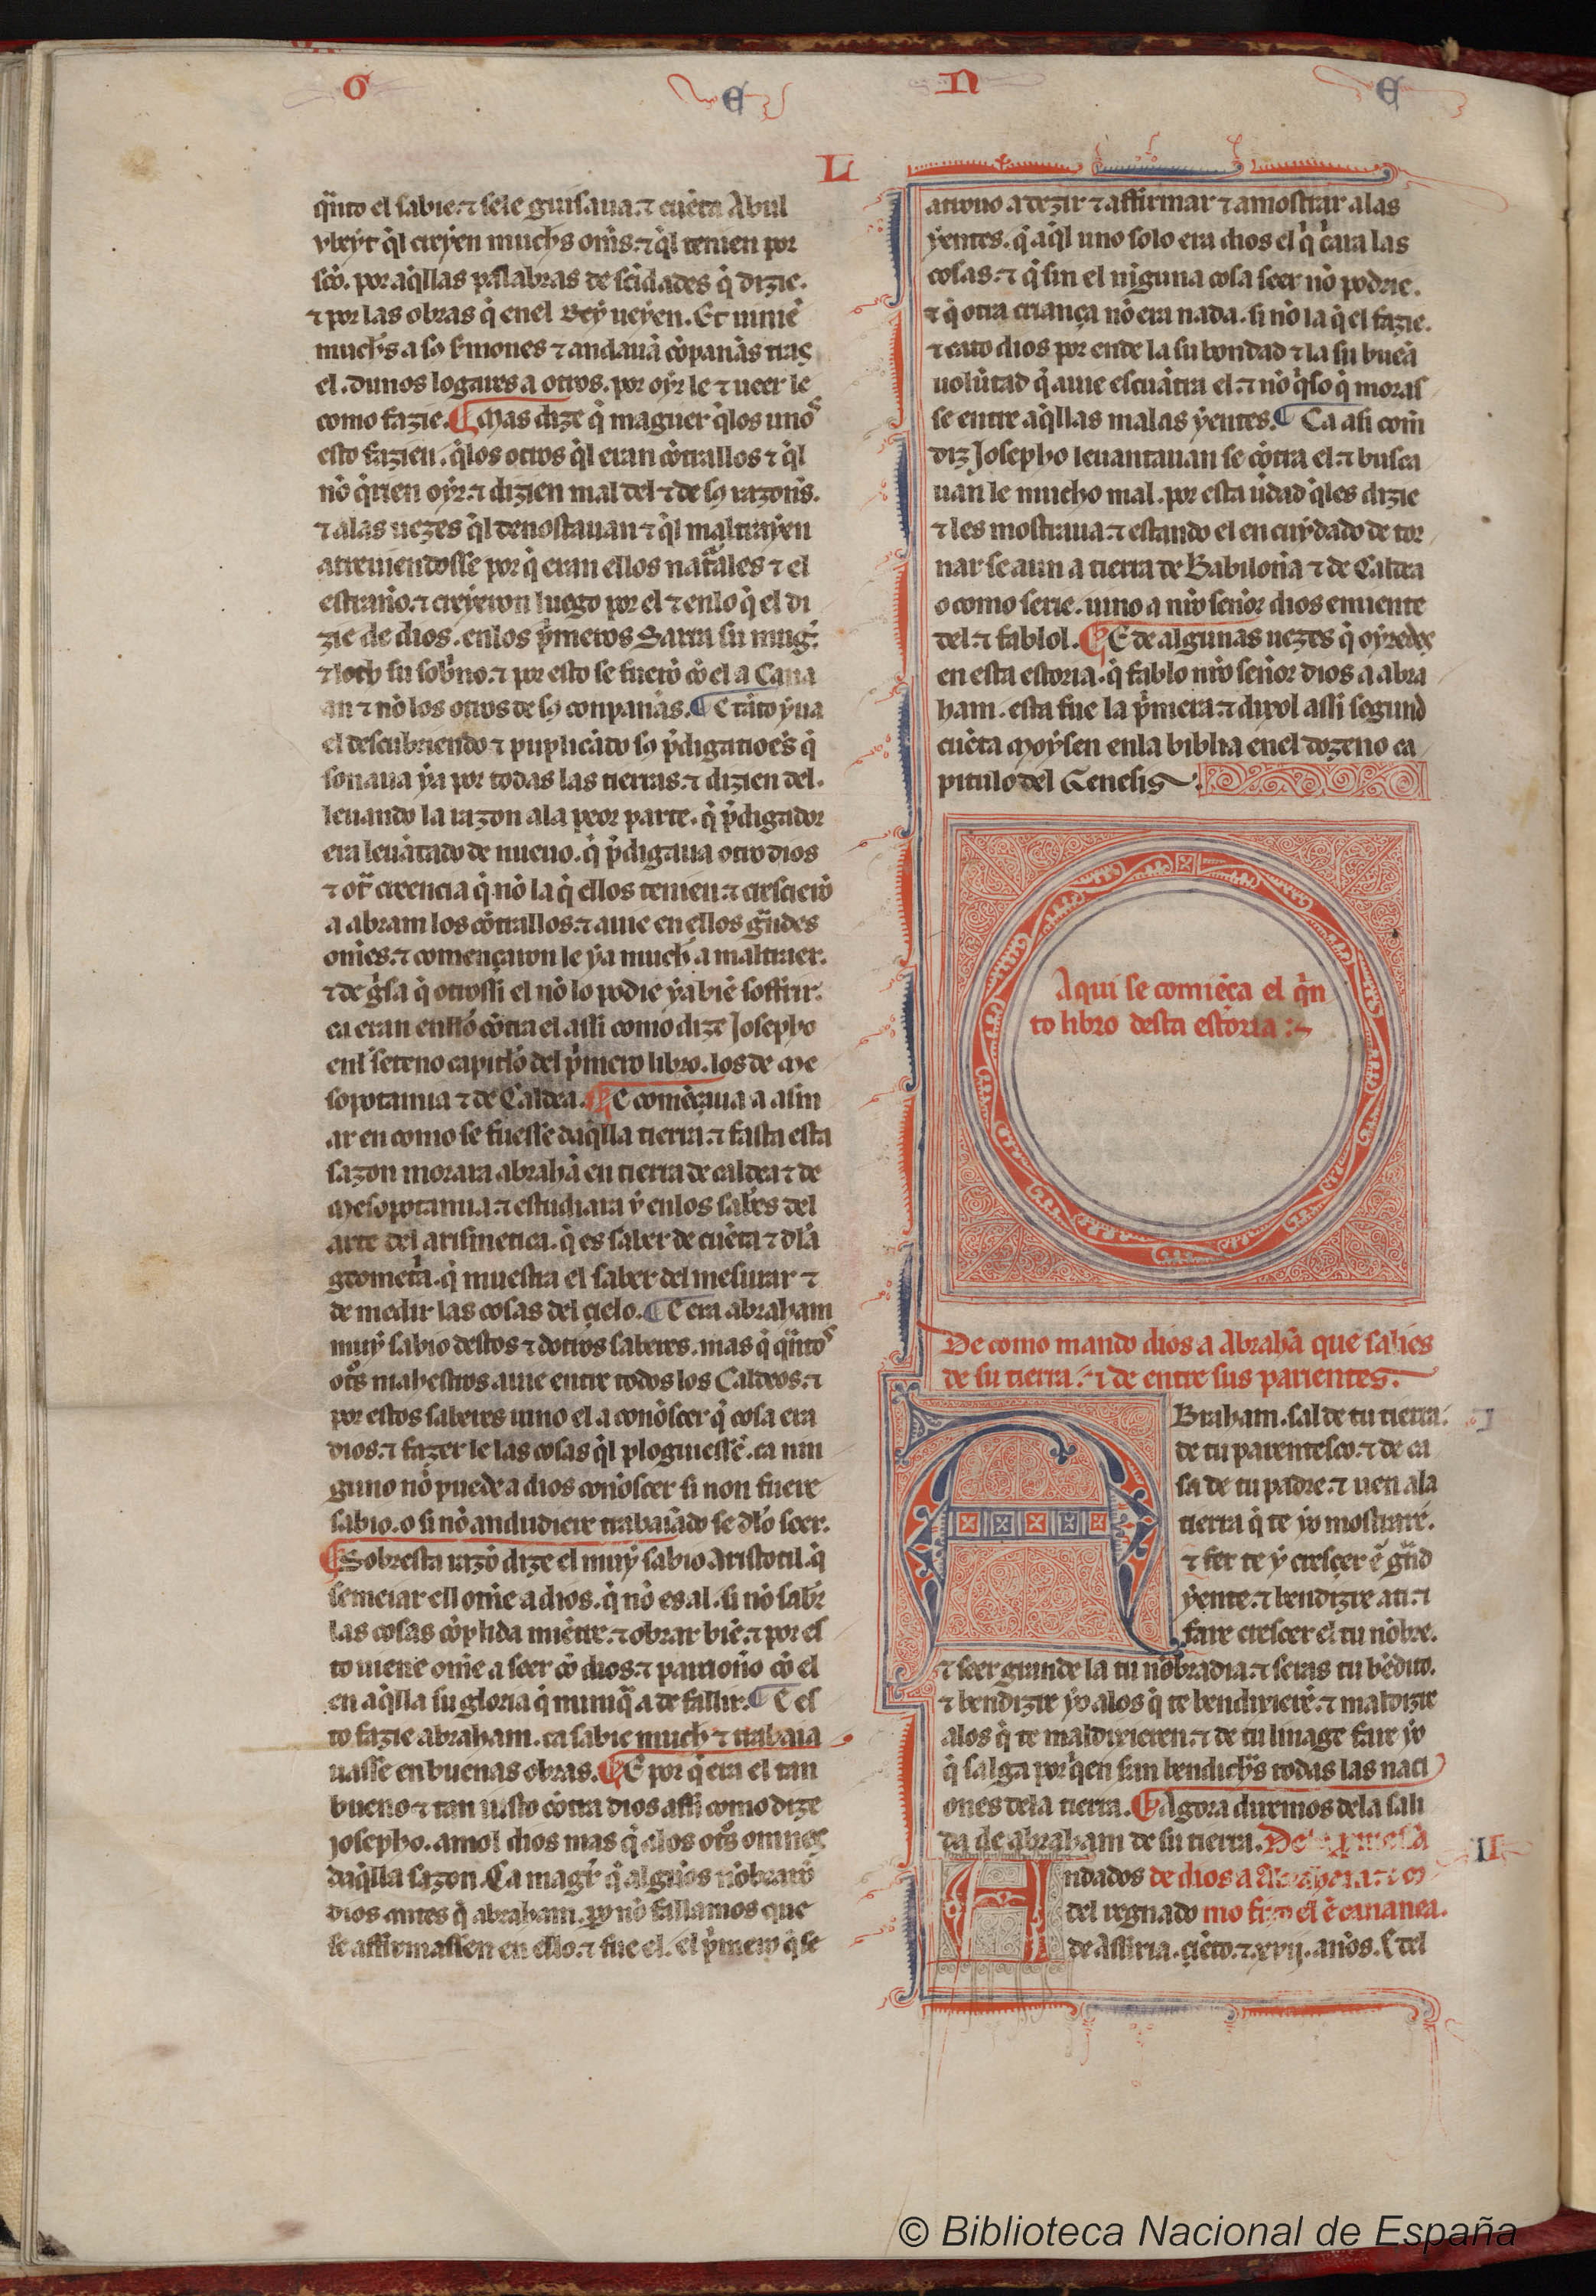 G E N E
L
q̃nto el sabie. ⁊ sele guisaua. ⁊ cuẽta Abul
ybeyt q̃l creyen muchs om̃s. ⁊ q̃l tenien por
sc̃o. por aq̃llas palabras de sc̃idades q̃ dizie.
⁊ por las obras q̃ enel Rey ueyen. Et uinie
muchs a s9 sermones ⁊ andauã cõpanãs tras
el. dunos logares a otros. por oyr le ⁊ ueer le
como fazie. ¶ Mas dize q̃ maguer q̃los unos
esto fazien. q̃los otros q̃l eran cõtrallos ⁊ q̃l
nõ q̃rien oyr. ⁊ dizien mal del ⁊ de s9 razons.
⁊ alas uezes q̃l denostauan ⁊ q̃l maltrayen
atreuiendosse por q̃ eran ellos nat̃ales ⁊ el
estranio. ⁊ creyeron luego por el ⁊ enlo q̃ el di
zie de dios. enlos p̃meros Sarra su mug̃.
⁊ loth su sob̃no. ⁊ por esto se fuerõ cõ el a Cana
an ⁊ nõ los otros de s9 conpanãs. ¶ E tãto yua
el descubriendo ⁊ puplicãdo s9 p̃digationes q̃
sonaua ya por todas las tierras. ⁊ dizien del.
leuando la razon ala peor parte. q̃ p̃digador
era leuãtado de nueuo. q̃ p̃digaua otro dios
⁊ ot̃ creencia q̃ nõ la q̃ ellos tenien. ⁊ crescierõ
a abram los cõtrallos. ⁊ auie en ellos g̃ndes
omes. ⁊ començaron le ya much a maltraer.
⁊ de g̃sa q̃ otrossi el nõ lo podie ya biẽ soffrir.
ca eran cõtra el assi como dize Josepho
enl seteno capitlõ del p̃mero libro. los de Me
sopotamia ⁊ de Caldea. ¶ E comẽçaua a asm
ar en como se fuesse daq̃lla tierra. ⁊ fasta esta
sazon morara abrahã en tierra de caldea ⁊ de
Mesopotamia. ⁊ estudiara y enlos sab̃es del
arte del arismetica. q̃ es saber de cuẽta ⁊ dla
geomet̃a. q̃ muestra el saber del mesurar ⁊
de medir las cosas del çielo. ¶ E era abraham
muy sabio destos ⁊ dotros saberes. mas q̃ q̃ntos
ot̃s mahestros auie entre todos los Caldeos. ⁊
por estos saberes uino el a conosçer q̃ cosa era
dios. ⁊ fazer le las cosas q̃l ploguiesse. ca nin
guno nõ puede a dios conosçer si non fuere
sabio. o si nõ andudiere trabaiãdo se dlo seer.
¶ Sobresta razõ dize el muy sabio Aristotil. q̃
semeiar ell ome a dios. q̃ nõ es al. si nõ sab̃
las cosas cõplida miẽtre. ⁊ obrar biẽ. ⁊ por es
to uiene ome a seer cõ dios. ⁊ parcionõ cõ el
en aq̃lla su gloria q̃ nunq̃ a de fallir. ¶ E es
to fazie abraham. ca sabie much ⁊ trabaia
uasse en buenas obras. ¶ E por q̃ era el tan
bueno ⁊ tan iusto cõtra dios assi como dize
Josepho. amol dios mas q̃ alos ot̃s omnes
daq̃lla sazon. Ca mag̃ q̃ algunos nõbrarõ
dios antes q̃ abraham. p̃o nõ fallamos que
se affirmassen en ello. ⁊ fue el. el p̃mero q̃ se
atrouo a dezir ⁊ affirmar ⁊ a mostrar alas
yentes. q̃ aq̃l uno solo era dios el q̃ c̃iara las
cosas. ⁊ q̃ sin el niguna cosa seer nõ podrie.
⁊ q̃ otra criança nõ era nada. si nõ la q̃ el fazie.
⁊ cato dios por ende la su bondad ⁊ la su buẽa
uolũtad q̃ auie escuãtra el. ⁊ nõ q̃so q̃ moras
se entre aq̃llas malas yentes. ¶ Ca asi com
diz Josepho leuantauan se cõtra el. ⁊ busca
uan le mucho mal. por esta ũdad q̃les dizie
⁊ les mostraua. ⁊ estando el en cuydado de tor
nar se aun a tierra de Babilonia ⁊ de Caldea
o como serie. uino a nr̃o senor dios emiente
del. ⁊ fablol. ¶ E de algunas uezes q̃ oyredes
en esta estoria. q̃ fablo nr̃o senor dios a abra
ham. esta fue la p̃mera. ⁊ dixol assi segund
cuẽta Moysen enla biblia enel dozeno ca
pitulo del Genesis.
Aqui se comiẽça el q̃n
to libro desta estoria :~
De como mando dios a Abrahã que salies
de su tierra. ⁊ de entre sus parientes.
I
ABraham. sal de tu tierra.
de tu parentesco. ⁊ de ca
sa de tu padre. ⁊ uen ala
tierra q̃ te yo mostrare.
⁊ fer te y cresçer ẽ g̃nd
yente. ⁊ bendizre ati. ⁊
fare cresçer el tu nõbre.
⁊ seer grande la tu nõbradia. ⁊ seras tu bẽdito.
⁊ bendizre yo alos q̃ te bendixierẽ. ⁊ maldizre
alos q̃ te maldixieren. ⁊ de tu linage fare yo
q̃ salga por q̃en seran bendichs todas las naci
ones dela tierra. ¶ Agora diremos dela sali
da de abraham de su tierra. De la
II
Andados de dios a Abraham. ⁊ co
del regnado mo fizo el ẽ cananea.
de Assiria. çiẽto. ⁊ xvij. anõs. E del
© Biblioteca Nacional de España